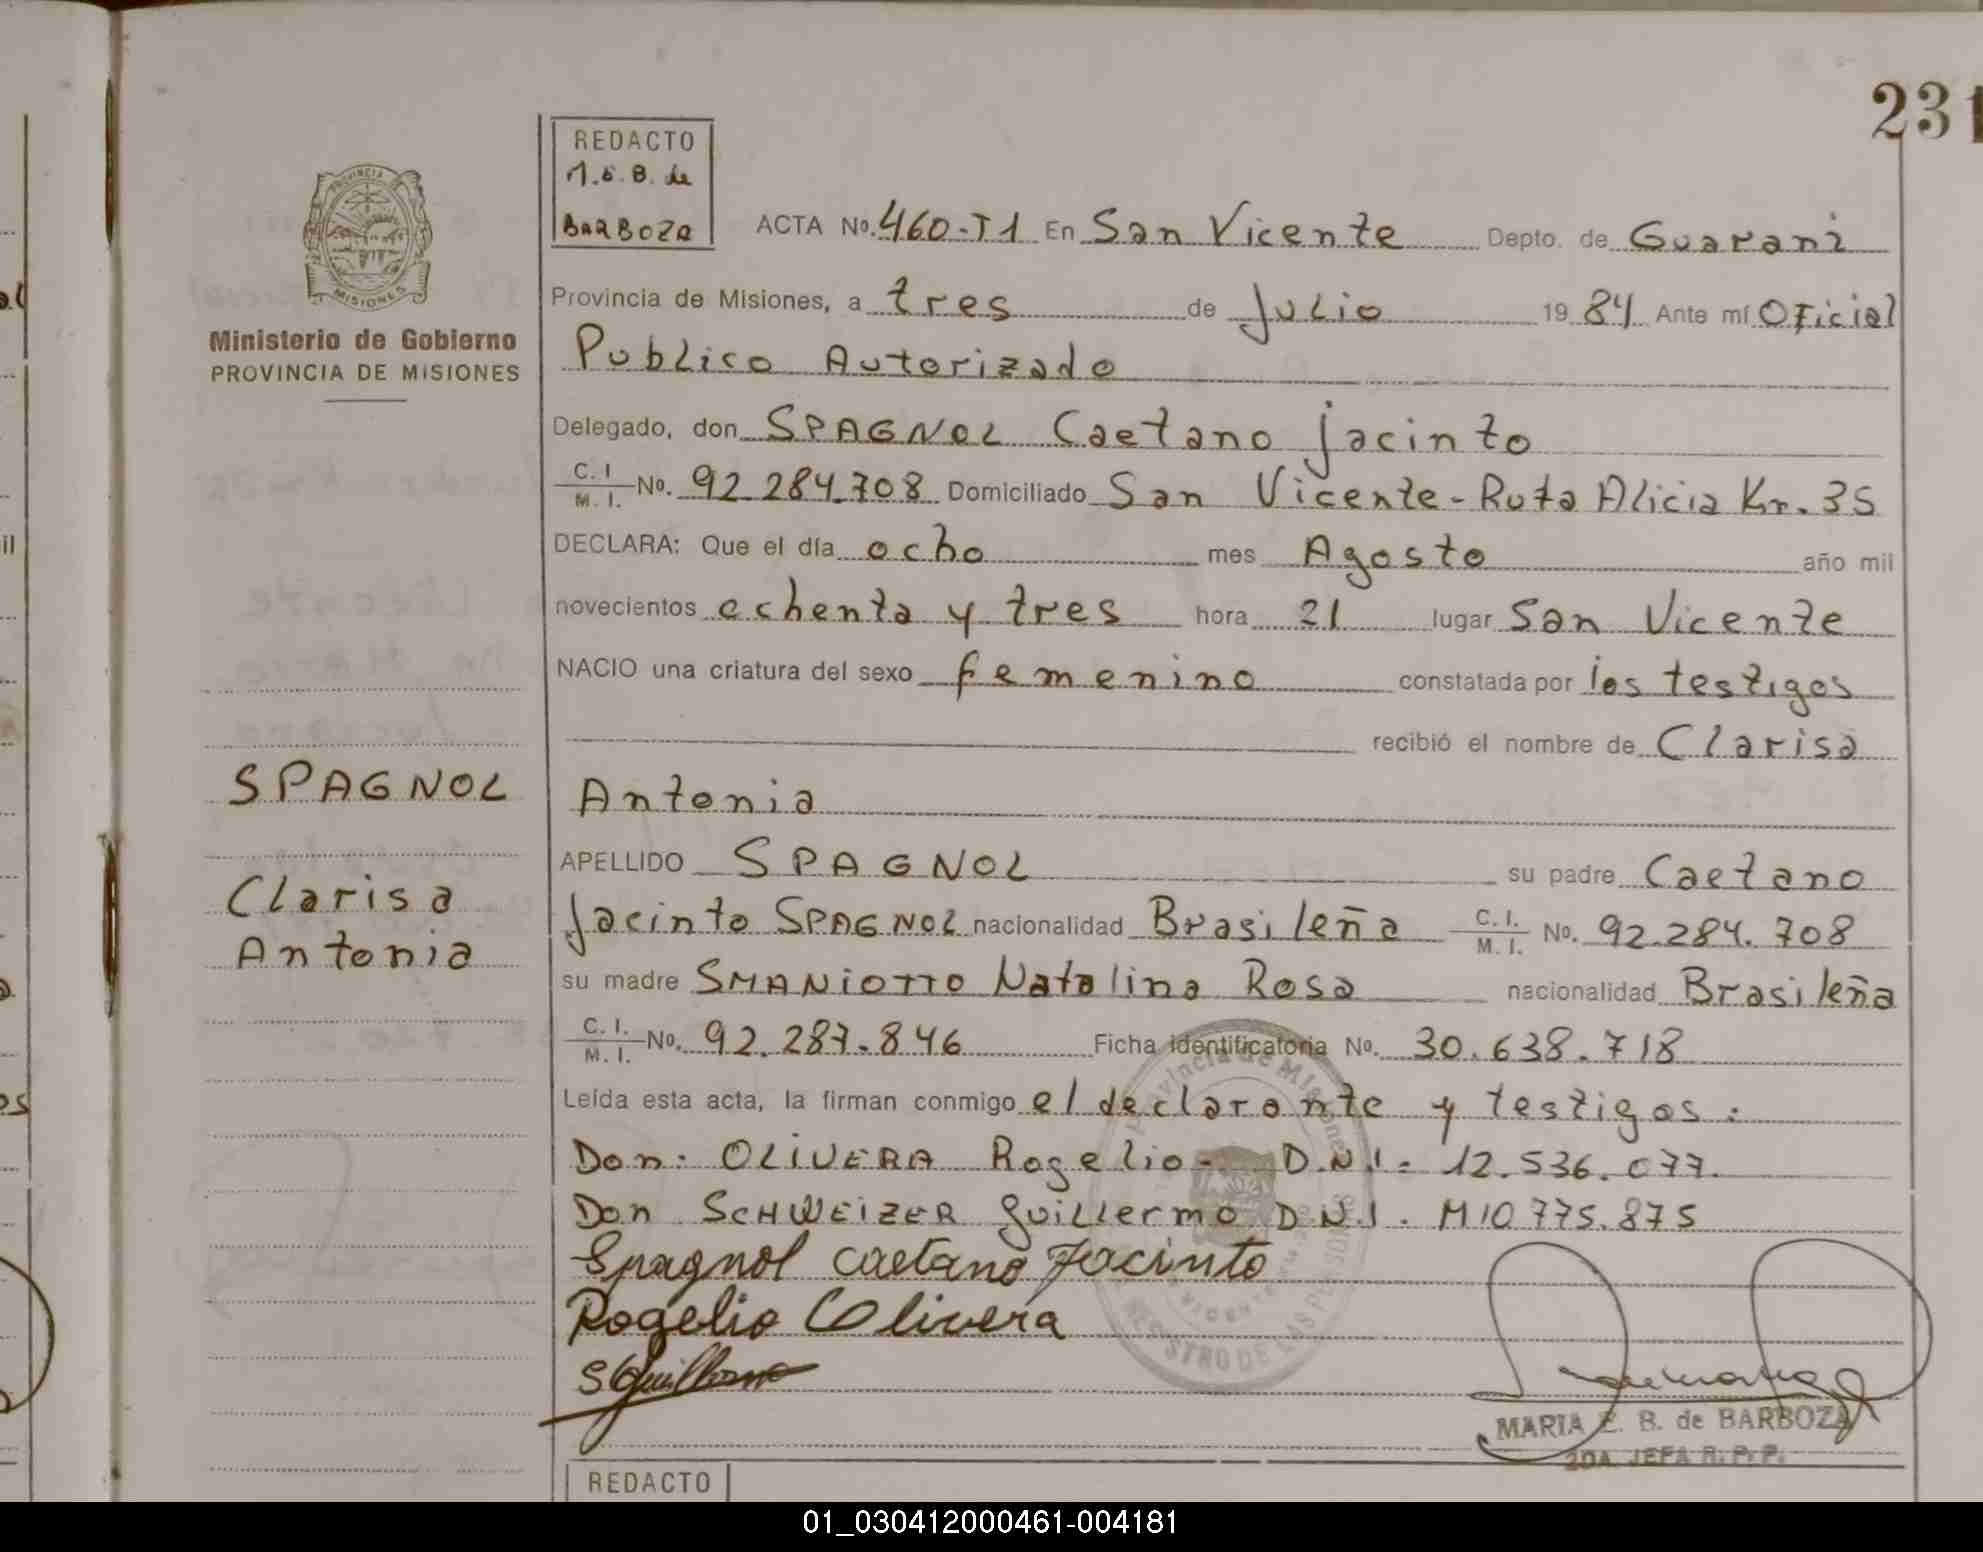 231
REDACTO
M. E. B. de
BARBOZA
PROVINCIA DE
MISIONES
Ministerio de Gobierno
PROVINCIA DE MISIONES
ACTA No. 460-T1 En San Vicente Depto. de Guarani
Provincia de Misiones, a tres de Julio 1984 Ante mí Oficial
Publico Autorizado
Delegado, don SPAGNOL Caetano Jacinto
C. I. / M. I. No. 92.284.708 Domiciliado San Vicente - Ruta Alicia Km. 35
DECLARA: Que el día ocho mes Agosto año mil
novecientos ochenta y tres hora 21 lugar San Vicente
NACIO una criatura del sexo femenino constatada por los testigos
recibió el nombre de Clarisa
Antonia
APELLIDO SPAGNOL su padre Caetano
Jacinto SPAGNOL nacionalidad Brasileña C. I. / M. I. No. 92.284.708
su madre SMANIOTTO Natalina Rosa nacionalidad Brasileña
C. I. / M. I. No. 92.287.846 Ficha identificatoria No. 30.638.718
Leída esta acta, la firman conmigo el declarante y testigos:
Don: OLIVERA Rogelio - D.N.I. 12.536.077.
Don SCHWEIZER Guillermo D.N.I. M10.775.875
Spagnol Caetano Jacinto
Rogelio Olivera
S Guillermo
SPAGNOL
Clarisa
Antonia
Provincia de Misiones
REGISTRO DE LAS PERSONAS
MARIA E. B. de BARBOZA
2DA. JEFA R. P. P.
REDACTO
01_030412000461-004181